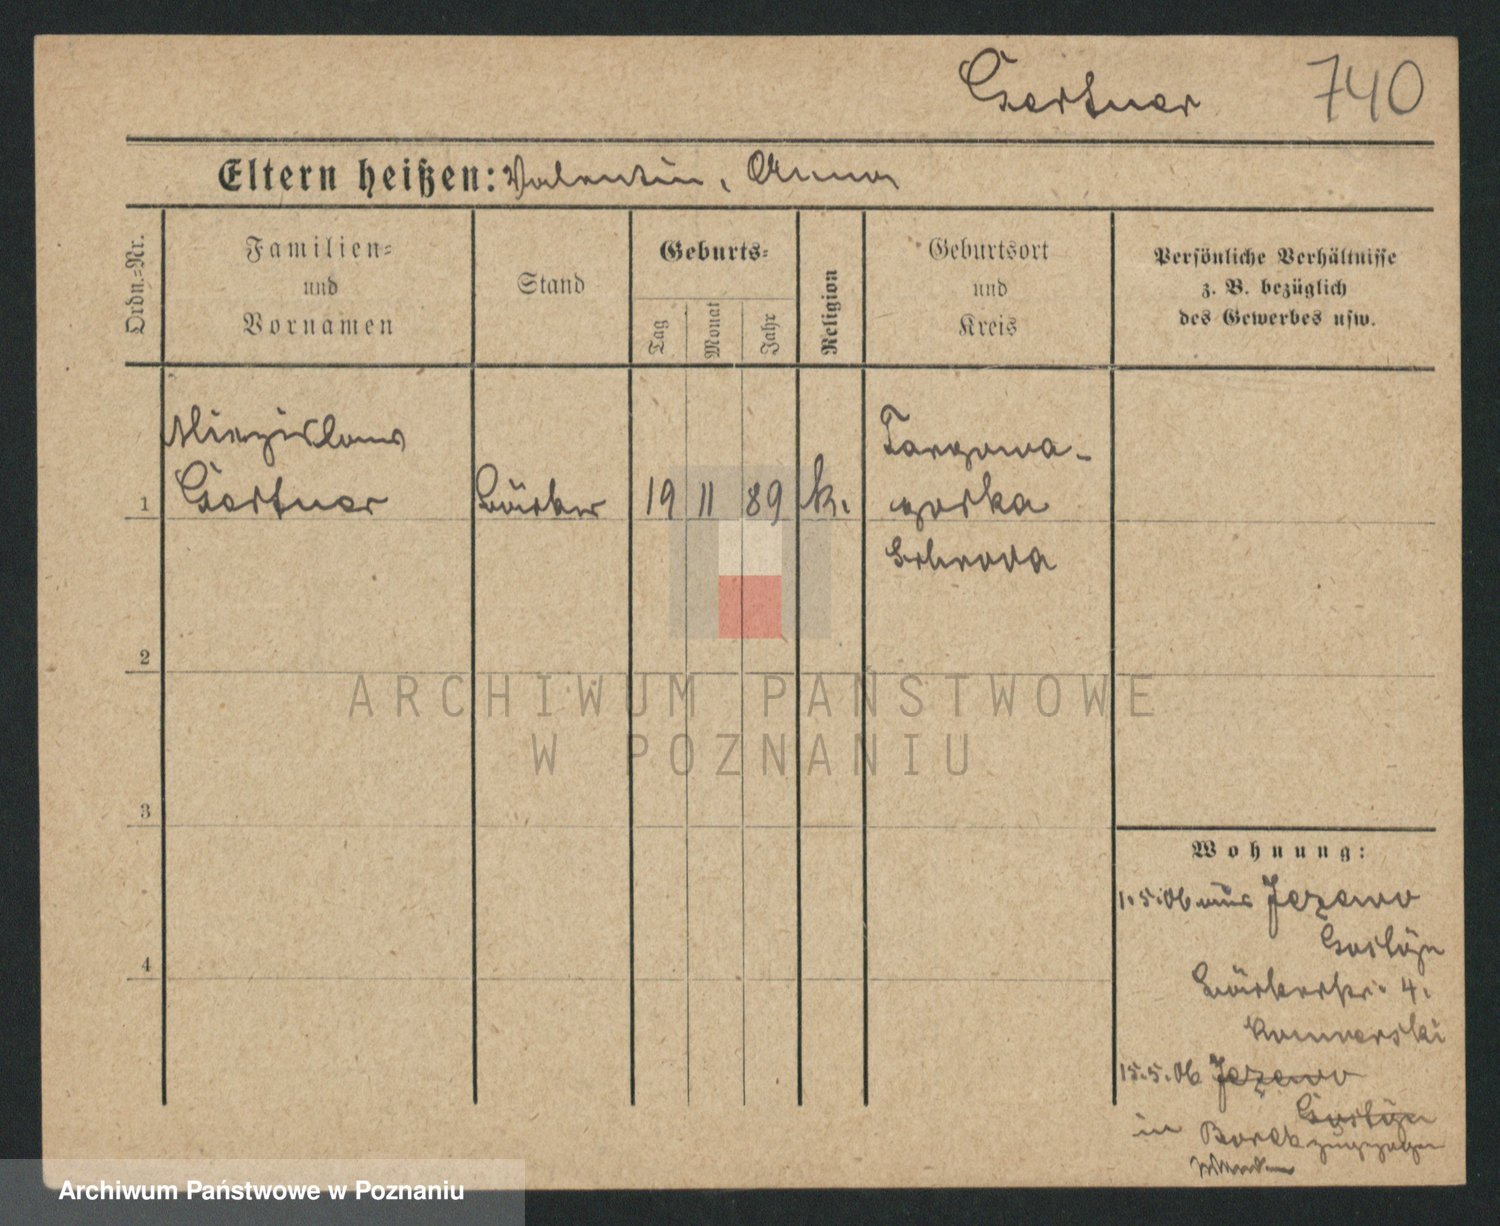 Gertner 740
Eltern heißen: Valentin, Anna
Ordn.-Nr.
Familien-
und
Vornamen
Stand
Geburts-
Tag
Monat
Jahr
Religion
Geburtsort
und
Kreis
Persönliche Verhältnisse
z. B. bezüglich
des Gewerbes usw.
Miezislaus
1 Gertner Bäcker 19 11 89 k.
Targowa-
gorka
Schroda
2
3
4
Wohnung:
1.5.06 aus Jezewo
Gostÿn
Bäckerstr. 4.
15.5.06 Jezewo
Gostÿn
in Borek zugezogen
ARCHIWUM PAŃSTWOWE
W POZNANIU
Archiwum Państwowe w Poznaniu